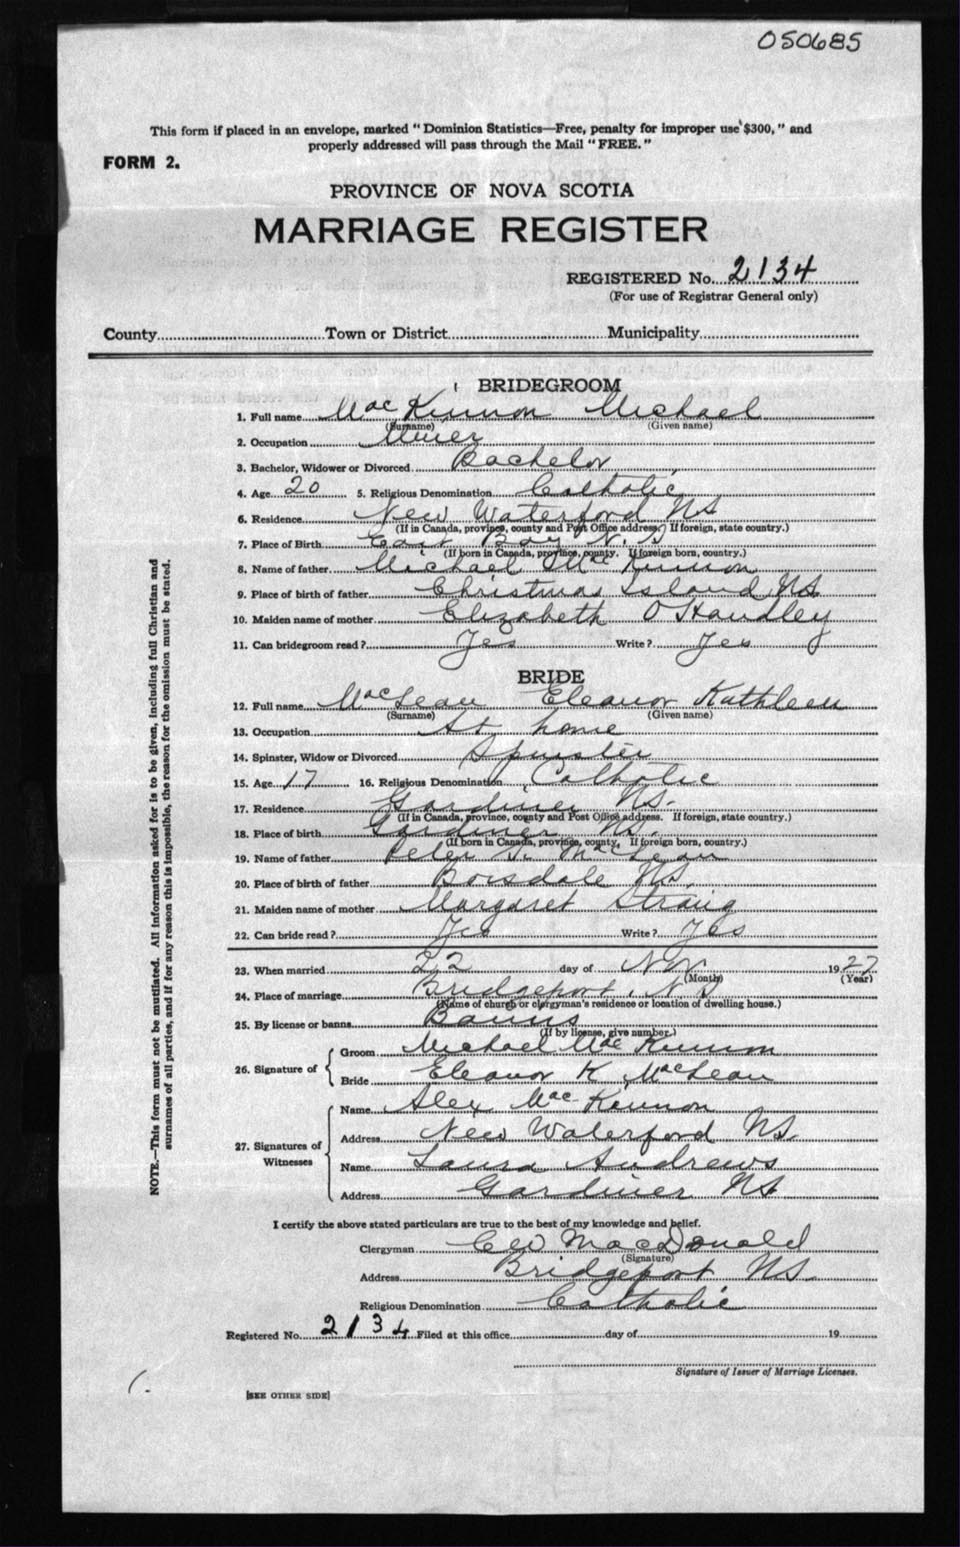 050685
This form if placed in an envelope, marked "Dominion Statistics—Free, penalty for improper use $300," and
properly addressed will pass through the Mail "FREE."
FORM 2.
PROVINCE OF NOVA SCOTIA
MARRIAGE REGISTER
REGISTERED No. 2134
(For use of Registrar General only)
County Town or District Municipality
BRIDEGROOM
1. Full name MacKinnon Michael
(Surname) (Given name)
2. Occupation Miner
3. Bachelor, Widower or Divorced Bachelor
4. Age 20 5. Religious Denomination Catholic
6. Residence New Waterford NS
(If in Canada, province, county and Post Office address. If foreign, state country.)
7. Place of Birth East Bay N.S
(If born in Canada, province, county. If foreign born, country.)
8. Name of father Michael MacKinnon
9. Place of birth of father Christmas Island NS
10. Maiden name of mother Elizabeth O'Handley
11. Can bridegroom read? Yes Write? Yes
BRIDE
12. Full name MacLean Eleanor Kathleen
(Surname) (Given name)
13. Occupation At home
14. Spinster, Widow or Divorced Spinster
15. Age 17 16. Religious Denomination Catholic
17. Residence Gardiner NS.
(If in Canada, province, county and Post Office address. If foreign, state country.)
18. Place of birth Gardiner NS.
(If born in Canada, province, county, If foreign born, country.)
19. Name of father Peter McLean
20. Place of birth of father Boisdale NS.
21. Maiden name of mother Margaret Strang
22. Can bride read? Yes Write? Yes
23. When married 22 day of Nov 1927
(Month) (Year)
24. Place of marriage Bridgeport, N.S
(Name of church or clergyman's residence or location of dwelling house.)
25. By license or banns Banns
(If by license, give number.)
26. Signature of Groom Michael MacKinnon
Bride Eleanor K MacLean
27. Signatures of Witnesses Name Alex MacKinnon
Address New Waterford NS.
Name Laura Andrews
Address Gardiner NS
I certify the above stated particulars are true to the best of my knowledge and belief.
Clergyman C W MacDonald
(Signature)
Address Bridgeport NS.
Religious Denomination Catholic
Registered No. 2134 Filed at this office day of 19
Signature of Issuer of Marriage Licenses.
[SEE OTHER SIDE]
NOTE.—This form must not be mutilated. All information asked for is to be given, including full Christian and
surnames of all parties, and if for any reason this is impossible, the reason for the omission must be stated.